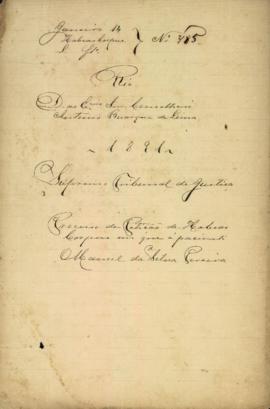 Janeiro 14
Habeas Corpus } Nº 485
Rio
Do Exmo Snr Conselheiro
Buarque de Lima
1891
Supremo Tribunal de Justiça
Recurso de Petição de Habeas
Corpus em que é paciente
Manoel da Silva Pereira